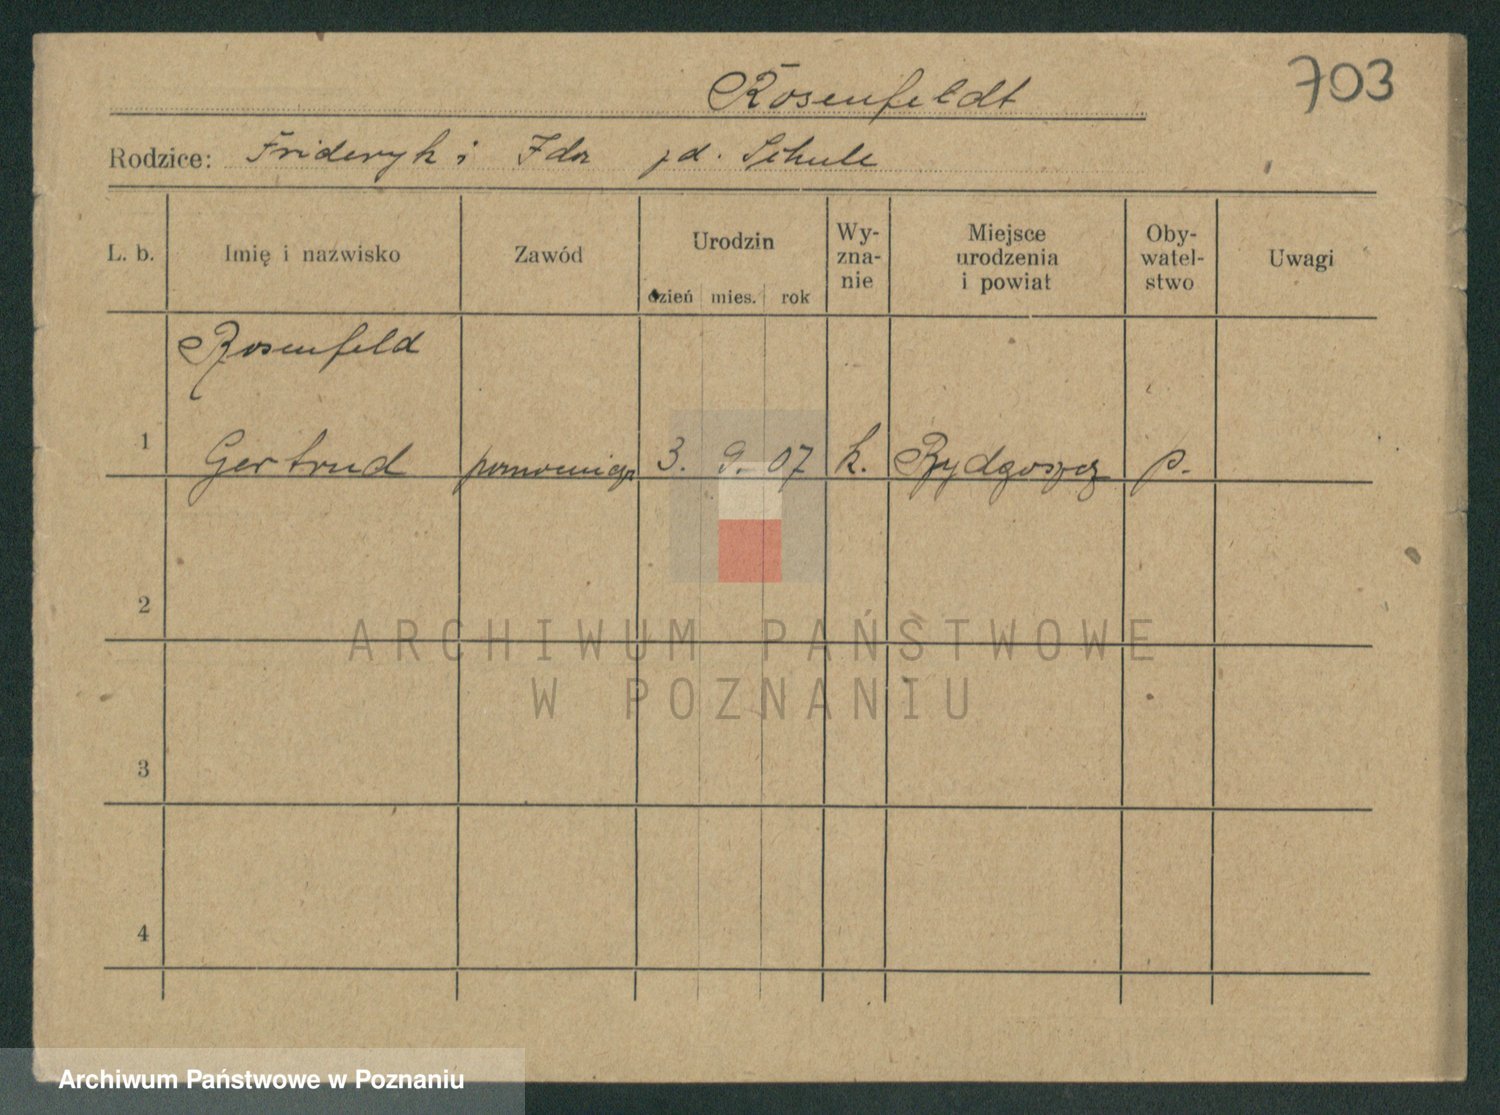 Rosenfeldt
703
Rodzice: Frideryk i Ida zd. Schule
L. b.
Imię i nazwisko
Zawód
Urodzin
dzień mies. rok
Wy-
zna-
nie
Miejsce
urodzenia
i powiat
Oby-
watel-
stwo
Uwagi
Rosenfeld
1 Gertrud 3. 9. 07 k. Bydgoszcz p.
2
3
4
ARCHIWUM PAŃSTWOWE
W POZNANIU
Archiwum Państwowe w Poznaniu